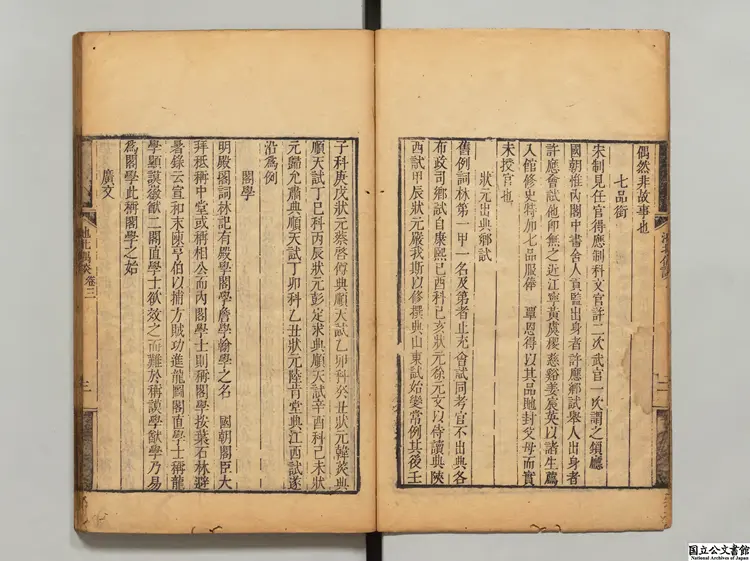 偶然非故事也
七品銜
宋制見任官得應制科文官許二次武官一次謂之鎖廳
國朝惟內閣中書舍人貢監出身者許應鄉試舉人出身者
許應會試他卽無之近江寧黃虞稷慈谿姜宸英以諸生薦
入館修史特加七品服俸 覃恩得以其品貤封父母而實
未授官也
狀元出典鄉試
舊例詞林第一甲一名及第者止充會試同考官不出典各
布政司鄉試自康熙己酉科己亥狀元徐元文以侍讀典陝
西試甲辰狀元嚴我斯以修撰典山東試始變常例其後壬
子科庚戌狀元蔡啓僔典順天試乙卯科癸丑狀元韓菼典
順天試丁巳科丙辰狀元彭定求典順天試辛酉科己未狀
元歸允肅典順天試丁卯科乙丑狀元陸肯堂典江西試遂
沿爲例
閣學
明殿閣詞林記有殿學閣學詹學翰學之名 國朝閣臣大
拜秪稱中堂或稱相公而內閣學士則稱閣學按葉石林避
暑錄云宣和末陳亨伯以捕方賊功進龍圖閣直學士稱龍
學顯謨徽猷二閣直學士欲效之而難於稱謨學猷學乃易
爲閣學此稱閣學之始
廣文
池北偶談 卷三
三
国立公文書館
National Archives of Japan